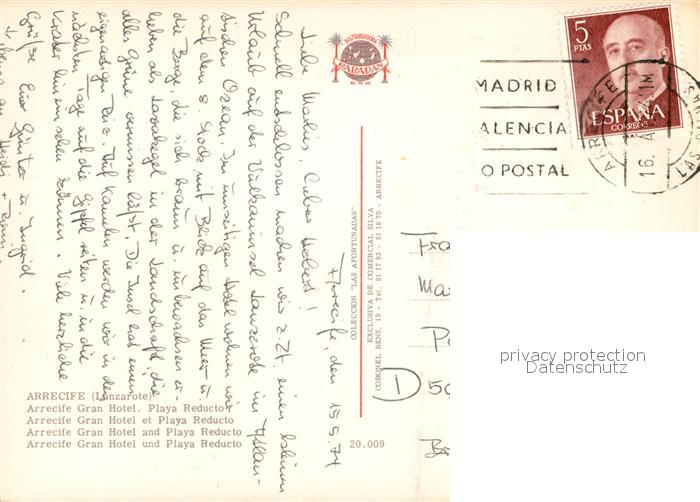 Arrecife, den 15.5.74
Liebe Maries, lieber Hubert!
Schnell entschlossen machen wir z.Zt. einen kleinen
Urlaub auf der Vulkaninsel Lanzarote im Atlan-
tischen Ozean. In unseitigen Hotel wohnen wir
auf dem 8. Stock mit Blick auf das Meer u.
die Berge, die sich braun u. unbewachsen er-
heben als Lavakegel in der Landschaft, die
alles Grüne vermissen läßt. Die Insel hat einen
eigenartigen Reiz. Auf Kamelen werden wir in den
nächsten Tagen auf die Gipfel reiten u. in die
Krater hinein sehen können. Viele herzliche
Grüße Eure Günter u. Ingrid.
PARADAN
5
PTAS
ESPAÑA
CORREOS
MADRID
ALENCIA
O POSTAL
ARRECIFE
16
COLECCION "LAS AFORTUNADAS"
EXCLUSIVA DE COMERCIAL SILVA
CORONEL BENS, 19 - Tel. 81 17 93 - 81 18 70 - ARRECIFE
Ma
D 50
ARRECIFE (Lanzarote)
Arrecife Gran Hotel. Playa Reducto
Arrecife Gran Hotel et Playa Reducto
Arrecife Gran Hotel and Playa Reducto
Arrecife Gran Hotel und Playa Reducto
20.009
privacy protection
Datenschutz